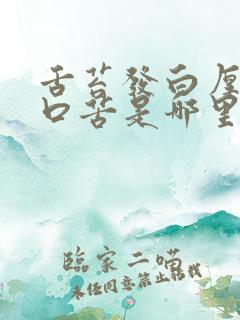 舌苔發白厚
口苦是哪里
臨家二喵
未经同意禁止转载